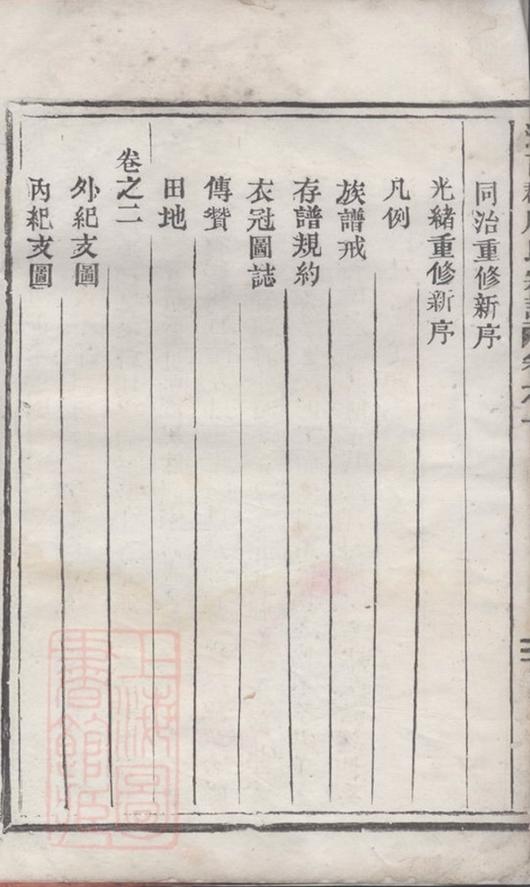 同治重修新序
光緒重修新序
凡例
族譜戒
存譜規約
衣冠圖誌
傳贊
田地
卷之二
外紀支圖
內紀支圖
上海圖書館藏